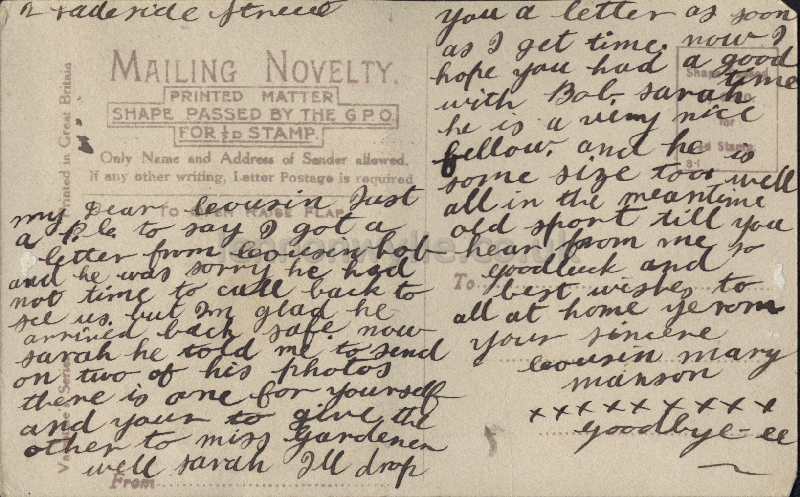 Street
MAILING NOVELTY.
PRINTED MATTER
SHAPE PASSED BY THE G.P.O.
FOR ½D STAMP.
Only Name and Address of Sender allowed.
If any other writing, Letter Postage is required
TO OPEN RAISE FLAP
Printed in Great Britain
my Dear cousin Just
a P.C. to say I got a
letter from cousin bob
and he was sorry he had
not time to call back to
see us. but Im glad he
arrived back safe. now
sarah he told me to send
on two of his photos
there is one for yourself
and your to give the
other to miss Gardener
well sarah I'll drop
From
you a letter as soon
as I get time. now I
hope you had a good
time
with Bob. sarah
he is a very nice
fellow. and he is
some size too. well
all in the meantime
old sport till you
hear from me so
goodluck and
To
best wishes to
all at home yerom
your sincere
cousin mary
manson
xxxxxxxxxx
goodbye-ee